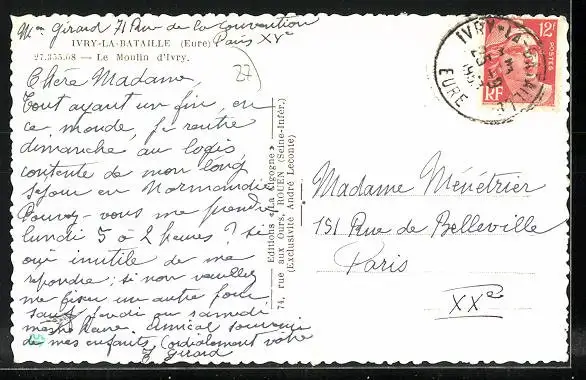 Mme Girard 71 Rue de la Convention
Paris XVe
IVRY-LA-BATAILLE (Eure)
27.355.08 — Le Moulin d'Ivry.
27
Chère Madame,
Tout ayant un fin, en
ce monde, je rentre
dimanche au logis
contente de mon long
séjour en Normandie
Pouvez-vous me prendre
lundi 5 à 2 heures ? si
oui inutile de me
répondre ; si non veuillez
me fixer un autre jour
sauf jeudi ou samedi
amical souvenir
de mes enfants Cordialement votre
Girard
Editions « La Cigogne »
74, rue aux Ours, ROUEN (Seine-Infér.)
(Exclusivité André Leconte)
IVRY-LA-BATAILLE
EURE
12F
POSTES
RF
Madame Ménétrier
151 Rue de Belleville
Paris
XXe